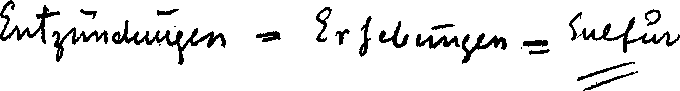 Entzündungen = Erhebungen = Sulfur